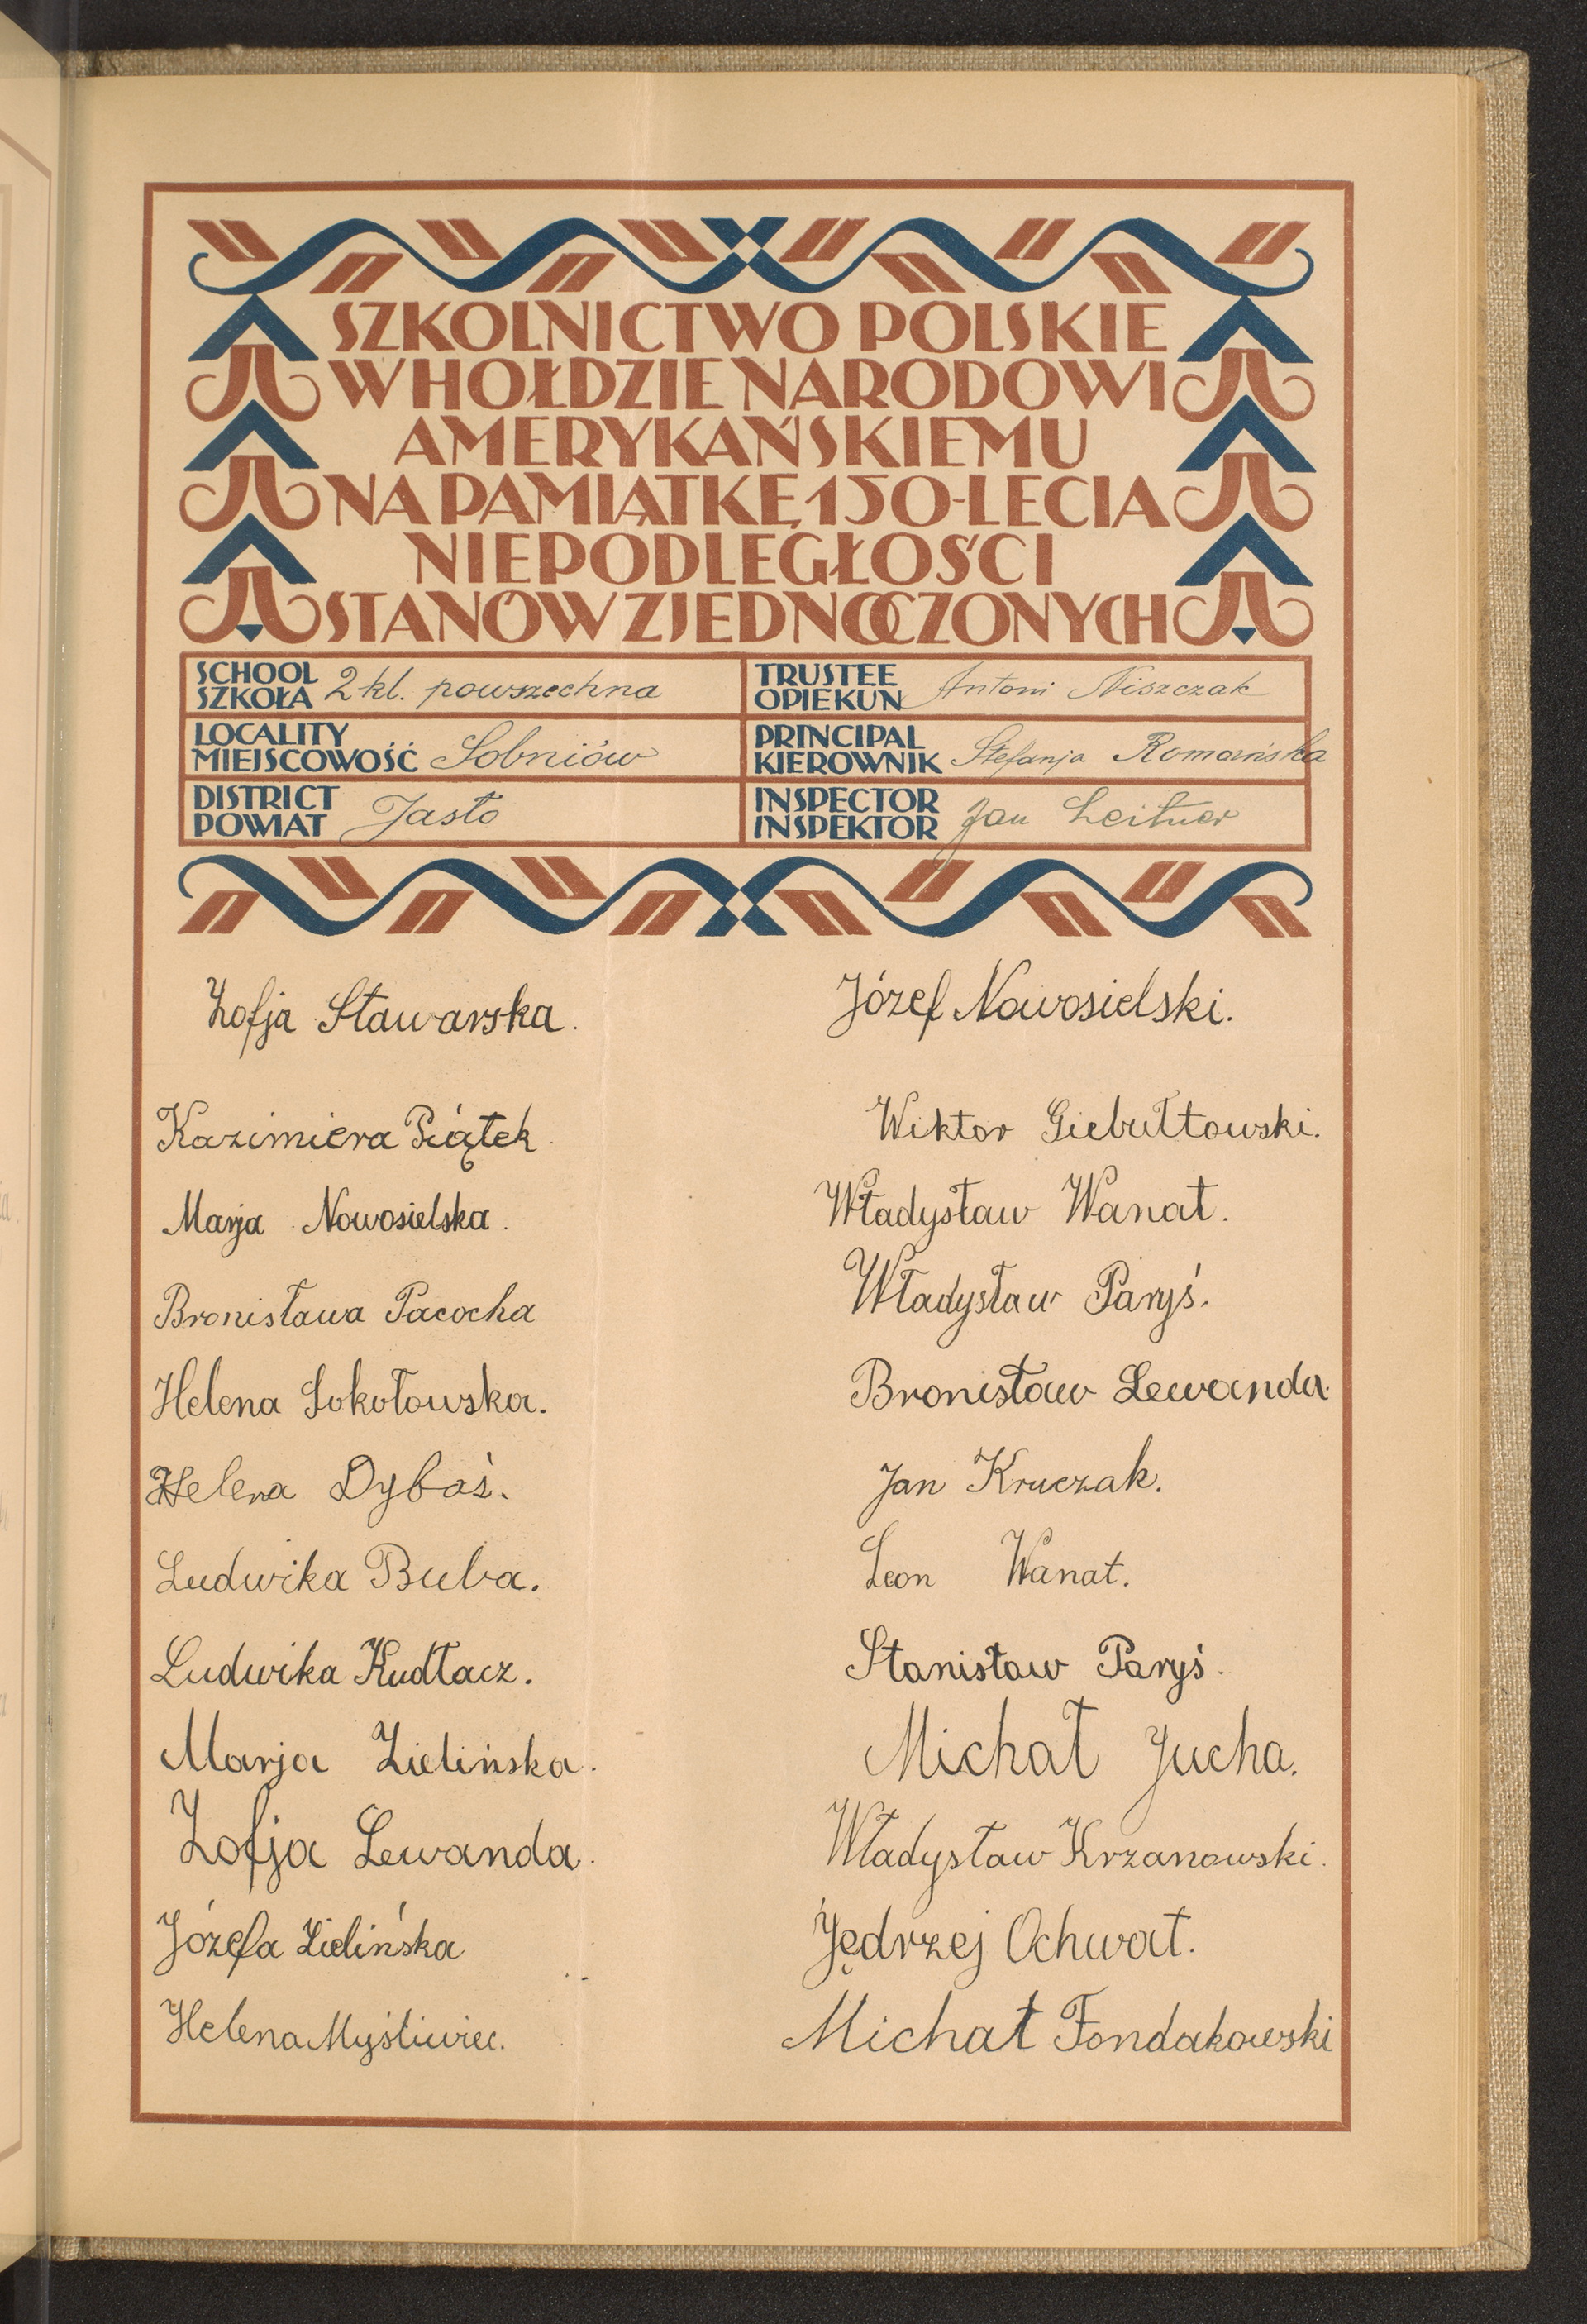 SZKOLNICTWO POLSKIE
W HOŁDZIE NARODOWI
AMERYKAŃSKIEMU
NA PAMIĄTKĘ 150-LECIA
NIEPODLEGŁOŚCI
STANÓW ZJEDNOCZONYCH
SCHOOL
SZKOŁA 2 kl. powszechna
TRUSTEE
OPIEKUN Antoni Niszczak
LOCALITY
MIEJSCOWOŚĆ Sobniów
PRINCIPAL
KIEROWNIK Stefanja Romańska
DISTRICT
POWIAT Jasło
INSPECTOR
INSPEKTOR Jan Leitner
Zofja Stawarska.
Kazimiera Piątek.
Marja Nowosielska.
Bronisława Pacocha
Helena Sokołowska.
Helena Dybaś.
Ludwika Buba.
Ludwika Kudłacz.
Marja Zielińska.
Zofja Lewanda.
Józefa Zielińska
Helena Myśliwiec.
Józef Nowosielski.
Wiktor Giebułtowski.
Władysław Wanat.
Władysław Paryś.
Bronisław Lewanda.
Jan Kruczak.
Leon Wanat.
Stanisław Paryś.
Michał Jucha.
Władysław Krzanowski.
Jędrzej Ochwat.
Michał Fondakowski